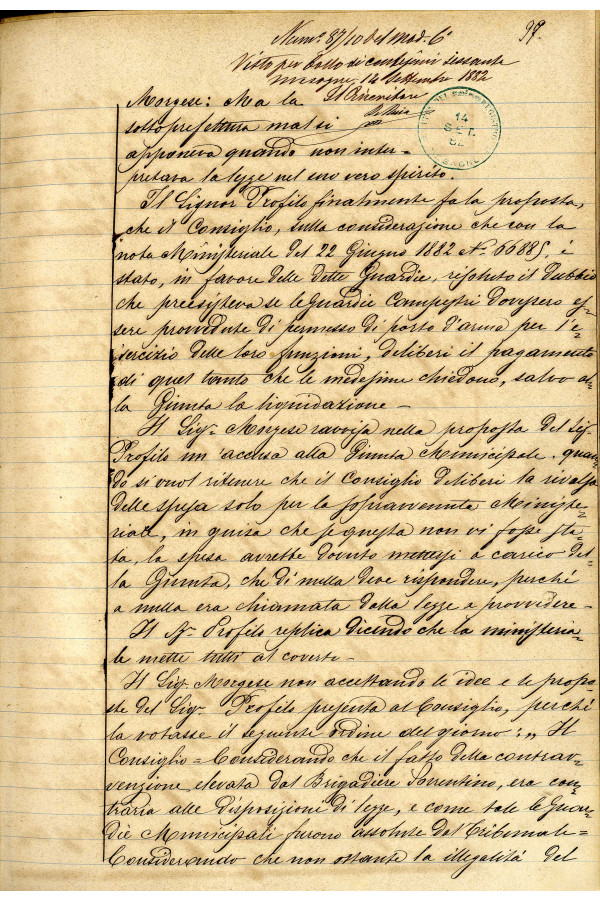 Num.º 8710 del Mod. 6º
99.
Visto per bollo di centesimi sessanta
Mesagne, 14 Settembre 1882
Il Ricevitore
14
SET.
82
Morgese: Ma la
sotto prefettura mal si
apponeva quando non inter-
pretava la legge nel suo vero spirito.
Il Signor Profilo finalmente fa la proposta,
che il Consiglio, sulla considerazione che con la
nota Ministeriale del 22 Giugno 1882 Nº 66885, è
stato, in favore delle dette Guardie, risoluto il dubbio
che preesisteva se le Guardie Campestri dovessero es=
sere provvedute di permesso di porto d'arma per l'e=
sercizio delle loro funzioni, deliberi il pagamento
di quel tanto che le medesime chiedono, salvo al=
la Giunta la liquidazione -
Il Sig.r Morgese ravvisa nella proposta del Sig.r
Profilo un'accusa alla Giunta Municipale. quan=
do si vuol ritenere che il Consiglio deliberi la rivalsa
delle spesa solo per la sopravvenuta Ministe=
riale, in guisa che se questa non vi fosse sta=
ta, la spesa avrebbe dovuto mettersi a carico del=
la Giunta, che di nulla deve rispondere, perché
a nulla era chiamata dalla legge a provvedere -
Il Sr. Profilo replica dicendo che la ministeria=
le mette tutti al coverto -
Il Sig.r Morgese non accettando le idee e le propo=
ste del Sig.r Profilo presenta al Consiglio, perché
la votasse il seguente ordine del giorno: „ Il
Consiglio = Considerando che il fatto della contrav=
venzione elevata dal Brigadiere Sorrentino, era con=
traria alle disposizioni di legge, e come tale le Guar=
die Municipali furono assolute dal Tribunale =
Considerando che non ostante la illegalità del